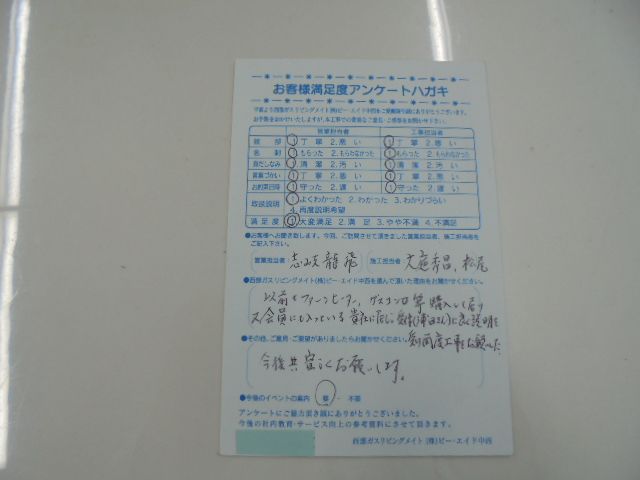 お客様満足度アンケートハガキ
平素より西部ガスリビングメイト(株)ビー・エイド中西をご愛顧賜り誠にありがとうございます。
お手数をおかけいたしますが、本工事での貴重なご意見・ご感想をお聞かせ下さい。
営業担当者 工事担当者
挨拶 1.丁寧 2.悪い 1.丁寧 2.悪い
名刺 1.もらった 2.もらわなかった 1.もらった 2.もらわなかった
身だしなみ 1.清潔 2.汚い 1.清潔 2.汚い
言葉づかい 1.丁寧 2.悪い 1.丁寧 2.悪い
お約束日時 1.守った 2.遅い 1.守った 2.遅い
取扱説明 1.よくわかった 2.わかった 3.わかりづらい
4.再度説明希望
満足度 1.大変満足 2.満足 3.やや不満 4.不満足
●お客様へお聞き致します。今回、ご訪問させて頂きました営業担当者、施工担当者を
ご記入下さい。
営業担当者: 志岐龍飛 施工担当者: 大庭秀昌、松尾
●西部ガスリビングメイト(株)ビー・エイド中西を選んで頂いた理由をお聞かせください。
以前もファンヒーター、ガスコンロ等購入して居り
又会員にも入っている貴社に
に良く説明を
●その他、ご意見・ご要望がありましたらお聞かせください。
今後共宜しくお願いします。
●今後のイベントの案内 要・不要
アンケートにご協力頂き誠にありがとうございました。
今後の社内教育・サービス向上の参考資料にさせて頂きます。
西部ガスリビングメイト (株)ビー・エイド中西